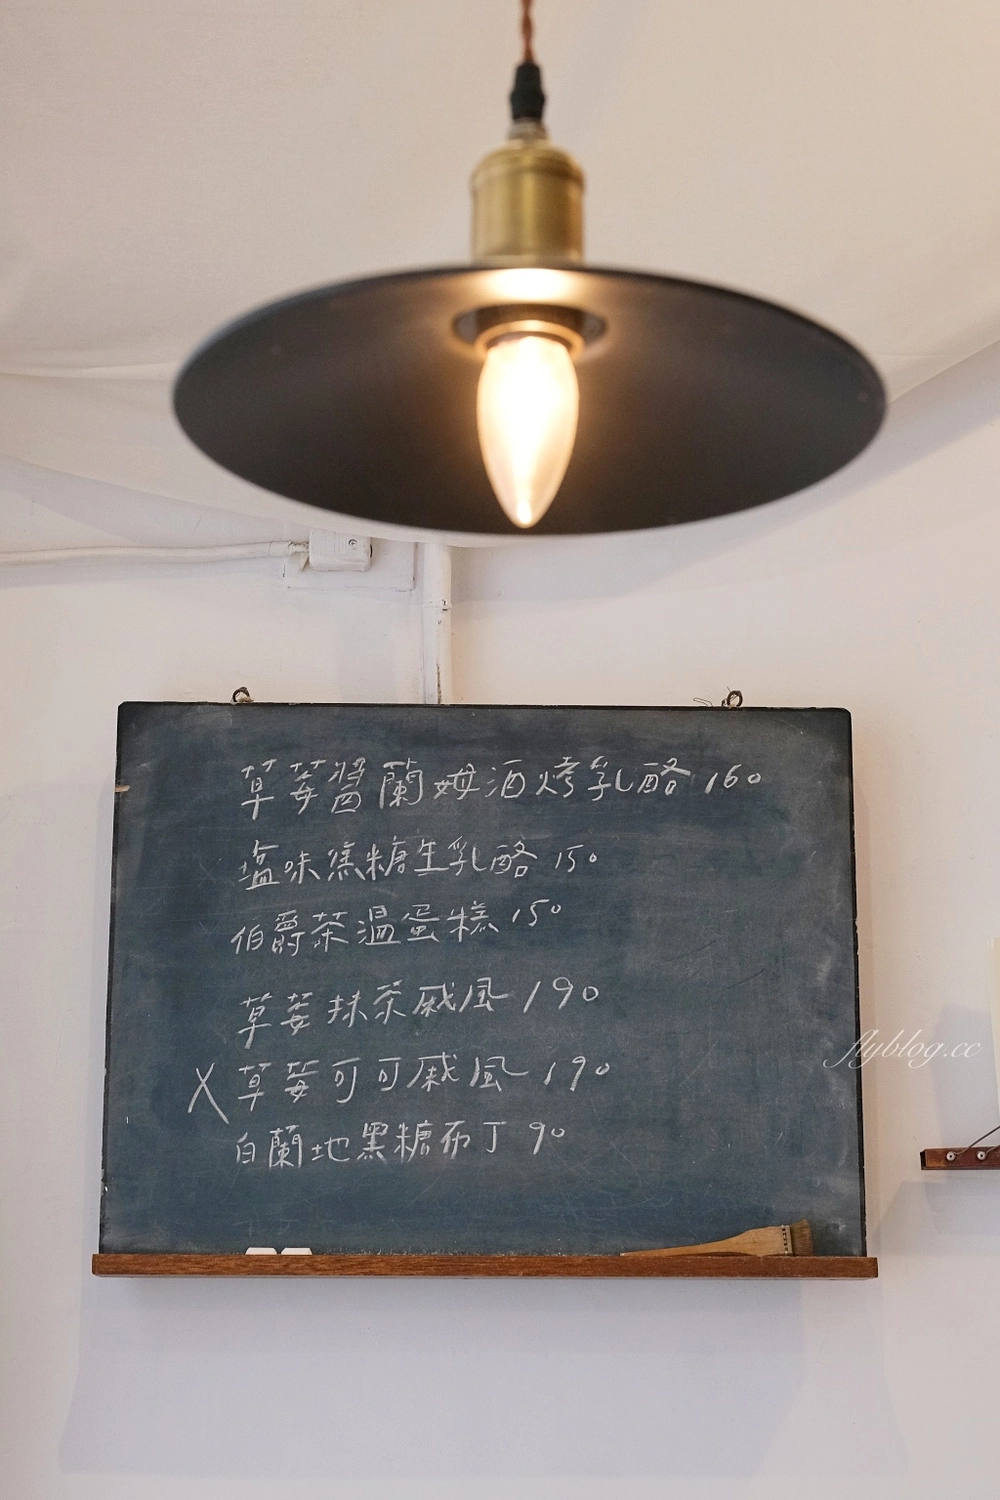 草莓醬蘭姆酒烤乳酪 160
塩味焦糖生乳酪 150
伯爵茶温蛋糕 150
草莓抹茶戚風 190
X草莓可可戚風 190
白蘭地黑糖布丁 90
flyblog.cc